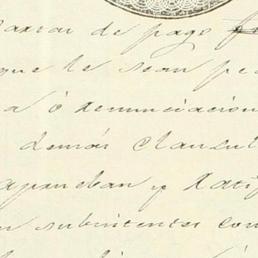 de pago
que le sean pe
a ó denunciacion
demás clausul
aprueban y ratif
n subsistentes con